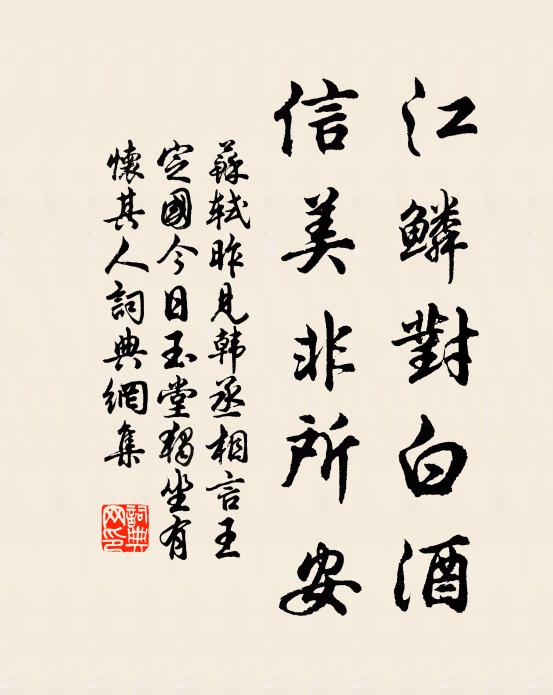 江鱗對白酒
信美非所安
蘇軾昨見韩丞相言王
定國今日玉堂獨坐有
懷其人詞典網集
詞典
网印